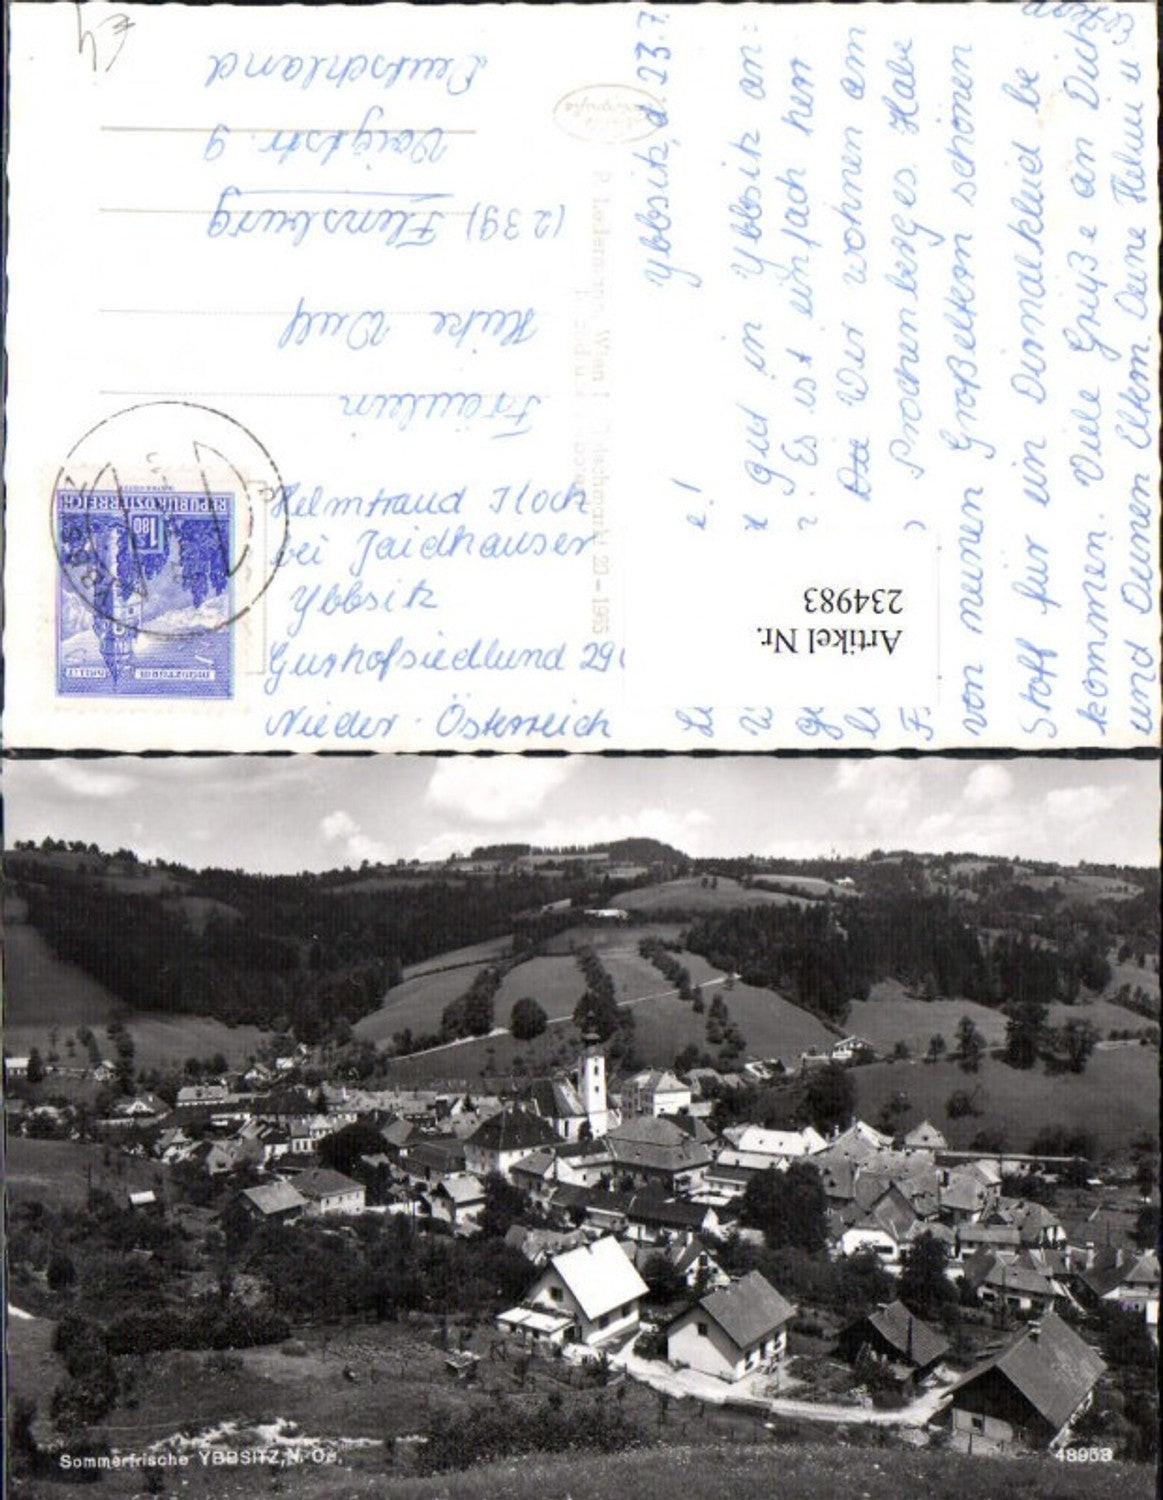 Ybbsitz, d. 23.7.
e!
gut in Ybbsitz an=
Es ist einfach herr
Wir wohnen am
Prochenberges. Habe
von meinen Großeltern schönen
Stoff für ein Dirndlkleid be
kommen. Viele Grüße an Dich
und Deinen Eltern. Deine Helmi u.
Fräulein
Heike Wulf
(239) Flensburg
Voigtstr. 9
Deutschland
Helmtraud Iloch
bei Jaidhauser
Ybbsitz
Gurhofsiedlund 29
Nieder-Österreich
REPUBLIK ÖSTERREICH
1.80
MÜNZTURM HALL I.T.
YBBSITZ
P. Ledermann, Wien I, Fleischmarkt 20 – 1965
Artikel Nr.
234983
Sommerfrische YBBSITZ, N. Oe.
48953